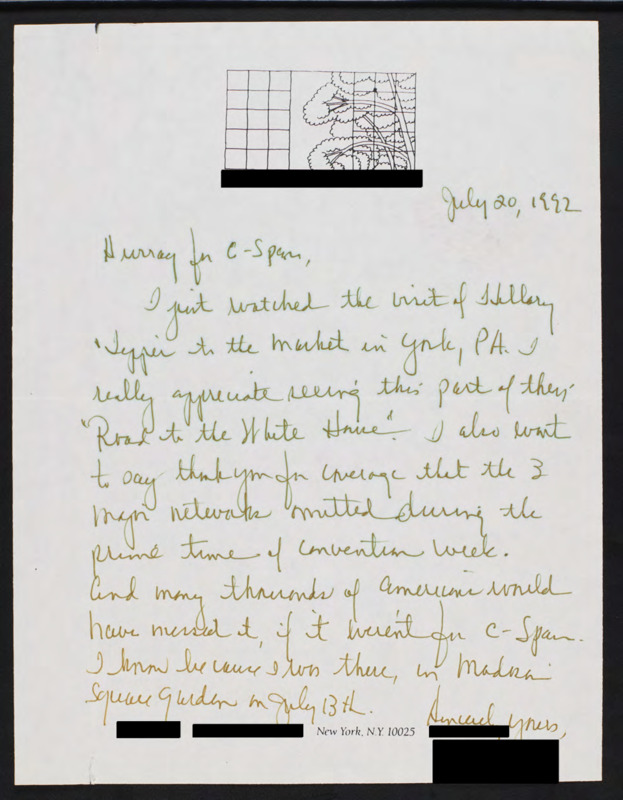 July 20, 1992
Hurray for C-Span,
I just watched the visit of Hillary
"Tipper to the market in York, PA. I
really appreciate seeing this part of their
"Road to the White House". I also want
to say thank you for coverage that the 3
major networks omitted during the
prime time of convention week.
And many thousands of Americans would
have missed it, if it weren't for C-Span.
I know because I was there, in Madison
Square Garden on July 13th.
Sincerely yours,
New York, N.Y. 10025